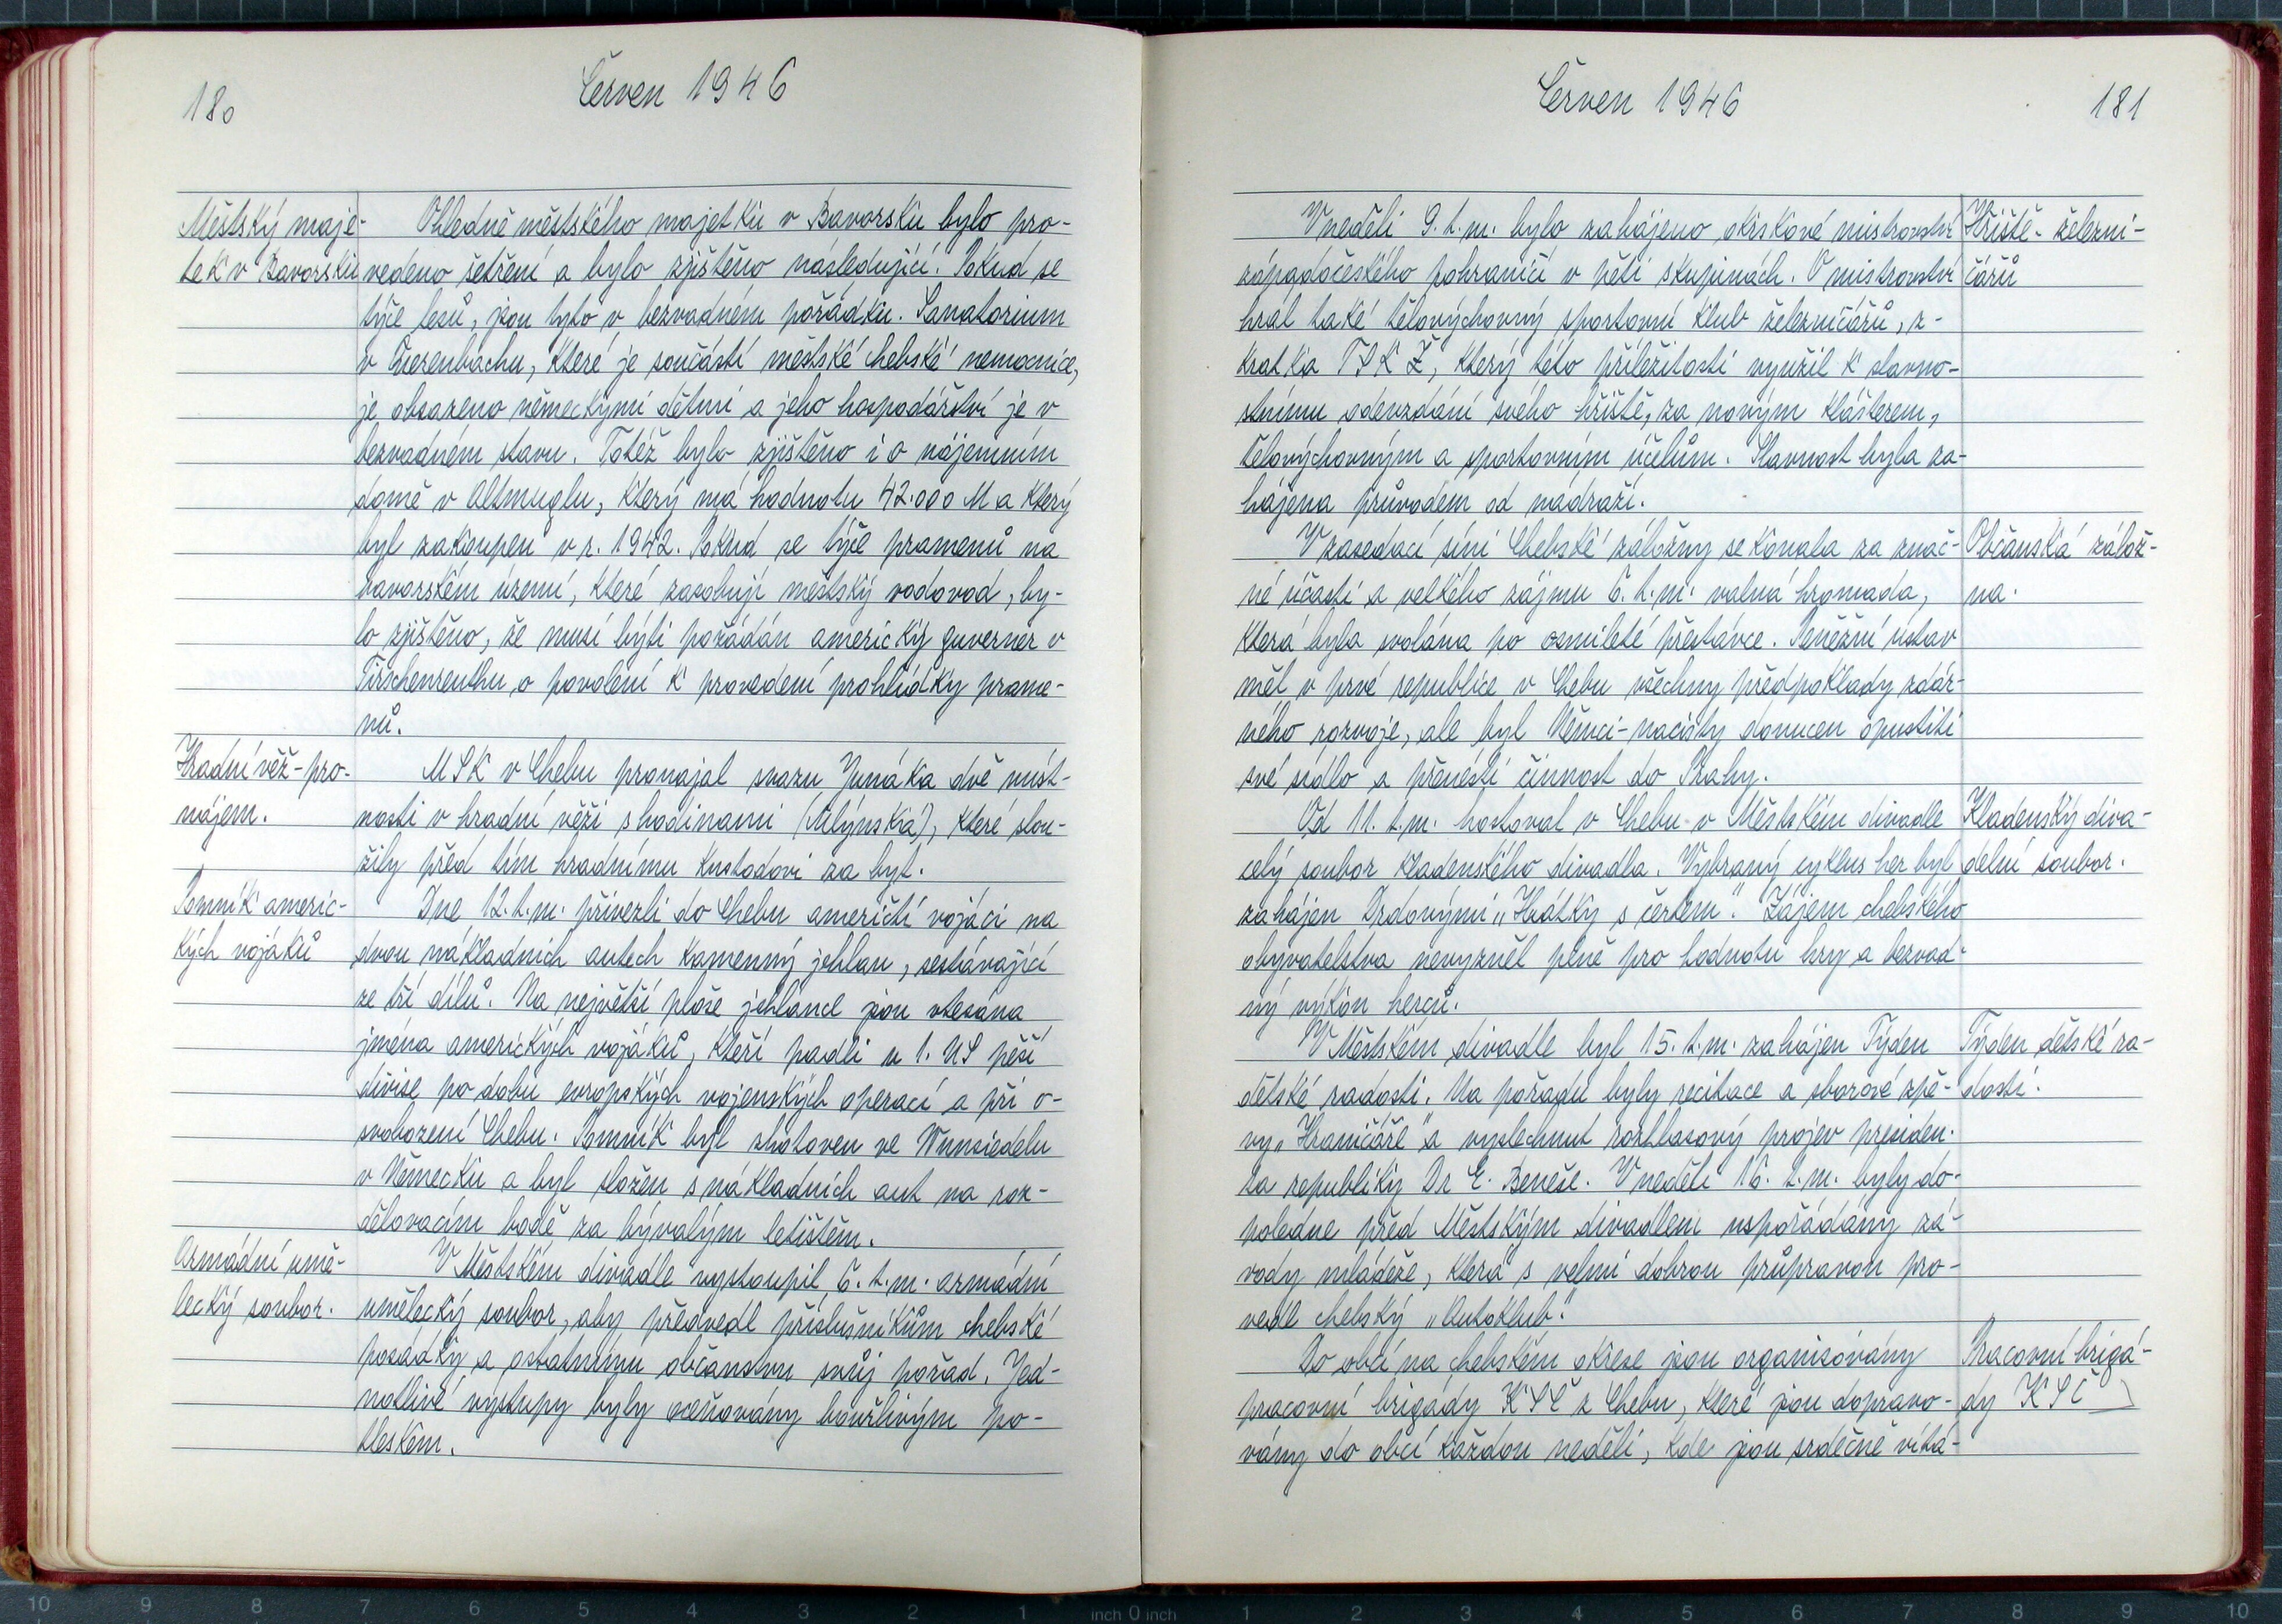 180
Červen 1946
Městský maje-
tek v Bavorsku
Ohledně městského majetku v Bavorsku bylo pro-
vedeno šetření a bylo zjištěno následující. Pokud se
týče lesů, jsou tyto v bezvadném pořádku. Sanatorium
v Wiesenbachu, které je součástí městské chebské nemocnice,
je obsazeno německými dětmi a jeho hospodářství je v
bezvadném stavu. Totéž bylo zjištěno i o nájemním
domě v Altmuglu, který má hodnotu 42.000 M a který
byl zakoupen v r. 1942. Pokud se týče pramenů na
bavorském území, které zasobují městský vodovod, by-
lo zjištěno, že musí býti požádán americký guvernér v
Tirschenreuthu o povolení k provedení prohlídky prame-
nů.
Hradní věž - pro-
nájem.
MSK v Chebu pronajal svazu Junáka dvě míst-
nosti v hradní věži s hodinami (Mlýnská), které slou-
žily před tím hradnímu kustodovi za byt.
Pomník americ-
kých vojáků
Dne 12. t. m. přivezli do Chebu američtí vojáci na
dvou nákladních autech kamenný jehlan, sestávající
ze tří dílů. Na největší ploše jehlance jsou vtesána
jména amerických vojáků, kteří padli u 1. US pěší
divise po dobu evropských vojenských operací a při o-
svobození Chebu. Pomník byl zhotoven ve Wunsiedelu
v Německu a byl složen s nákladních aut na roz-
dělovacím bodě za bývalým letištěm.
Armádní umě-
lecký soubor.
V Městském divadle vystoupil 6. t. m. armádní
umělecký soubor, aby předvedl příslušníkům chebské
posádky a ostatnímu občanstvu svůj pořad. Jed-
notlivé výstupy byly oceňovány bouřlivým po-
tleskem.
Červen 1946
181
V neděli 9. t. m. bylo zahájeno okrskové mistrovství
západočeského pohraničí v pěti skupinách. O mistrovství
hrál také tělovýchovný sportovní klub železničářů, z-
kratka TSK Ž, který této příležitosti využil k slavno-
stnímu odevzdání svého hřiště, za novým klášterem,
tělovýchovným a sportovním účelům. Slavnost byla za-
hájena průvodem od nádraží.
Hřiště - železni-
čářů
V zasedací síni Chebské záložny se konala za znač-
né účasti a velkého zájmu 6. t. m. valná hromada,
která byla svolána po osmileté přestávce. Peněžní ústav
měl v prvé republice v Chebu všechny předpoklady zdár-
ného rozvoje, ale byl Němci-nacisty donucen opustiti
své sídlo a přenésti činnost do Prahy.
Občanská zálož-
na.
Od 11. t. m. hostoval v Chebu v Městském divadle
celý soubor kladenského divadla. Vybraný cyklus her byl
zahájen Drdovými „Hrátky s čertem". Zájem chebského
obyvatelstva nevyzněl plně pro hodnotu hry a bezvad-
ný výkon herců.
Kladenský diva-
delní soubor.
V Městském divadle byl 15. t. m. zahájen Týden
dětské radosti. Na pořadu byly recitace a sborové zpě-
vy „Hraničáře" a vyslechnut rozhlasový projev presiden-
ta republiky Dr E. Beneše. V neděli 16. t. m. byly do-
poledne před Městským divadlem uspořádány zá-
vody mládeže, která s velmi dobrou průpravou pro-
vedl chebský „Autoklub".
Týden dětské ra-
dosti.
Do obcí na chebském okrese jsou organisovány
pracovní brigády KSČ z Chebu, které jsou dopravo-
vány do obcí každou neděli, kde jsou srdečně vítá-
Pracovní brigá-
dy KSČ
10 9 8 7 6 5 4 3 2 1 inch 0 inch 1 2 3 4 5 6 7 8 9 10